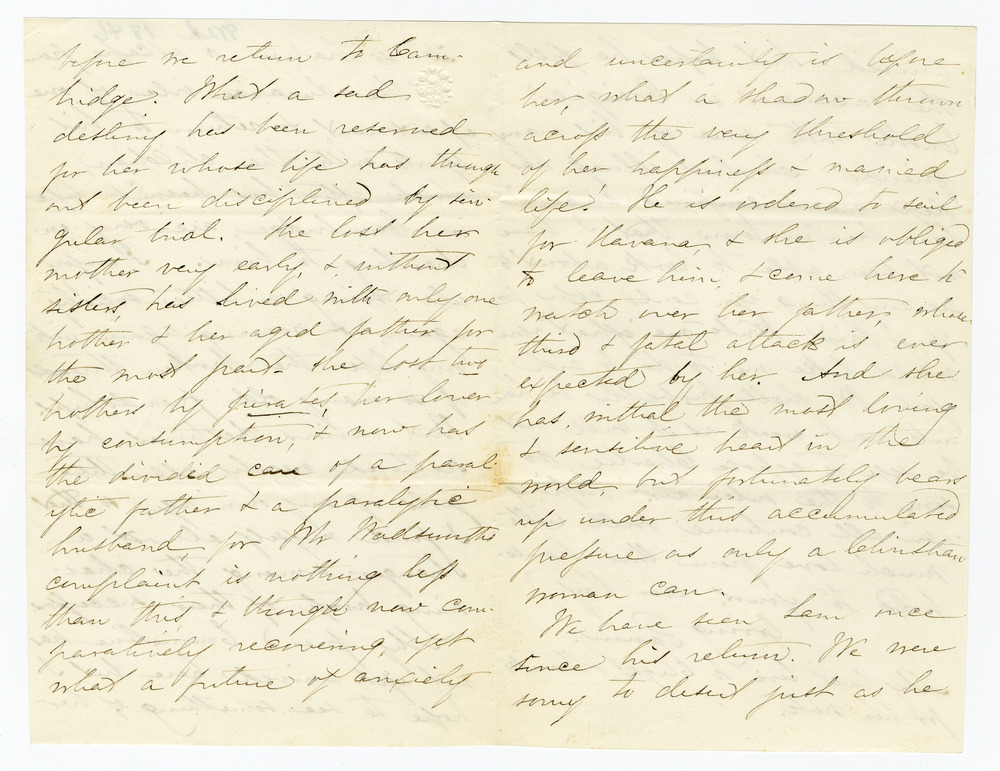 before we return to Cam-
bridge. What a sad
destiny has been reserved
for her whose life has through
out been disciplined by sin-
gular trial. She lost her
mother very early, & without
sisters, has lived with only one
brother & her aged father for
the most part. She lost two
brothers by pirates, her lover
by consumption, & now has
the divided care of a paral-
ytic father & a paralytic
husband, for Mr Wadsworth's
complaint is nothing less
than this & though now com-
paratively recovering, yet
what a future of anxiety
and uncertainty is before
her, what a shadow thrown
across the very threshold
of her happiness & married
life! He is ordered to sail
for Havana, & she is obliged
to leave him, & come here to
watch over her father, whose
third & fatal attack is ever
expected by her. And she
has, withal the most loving
& sensitive heart in the
world, but fortunately bears
up under this accumulated
pressure as only a Christian
woman can.
We have seen Sam once
since his return. We were
sorry to desert just as he